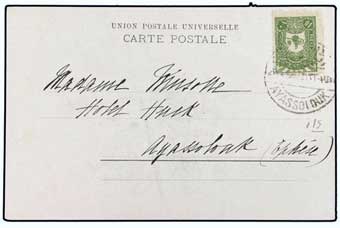 UNION POSTALE UNIVERSELLE
CARTE POSTALE
AYASSOLOUK
Madame
Hotel Huck
Ayasolouk (Ephèse)